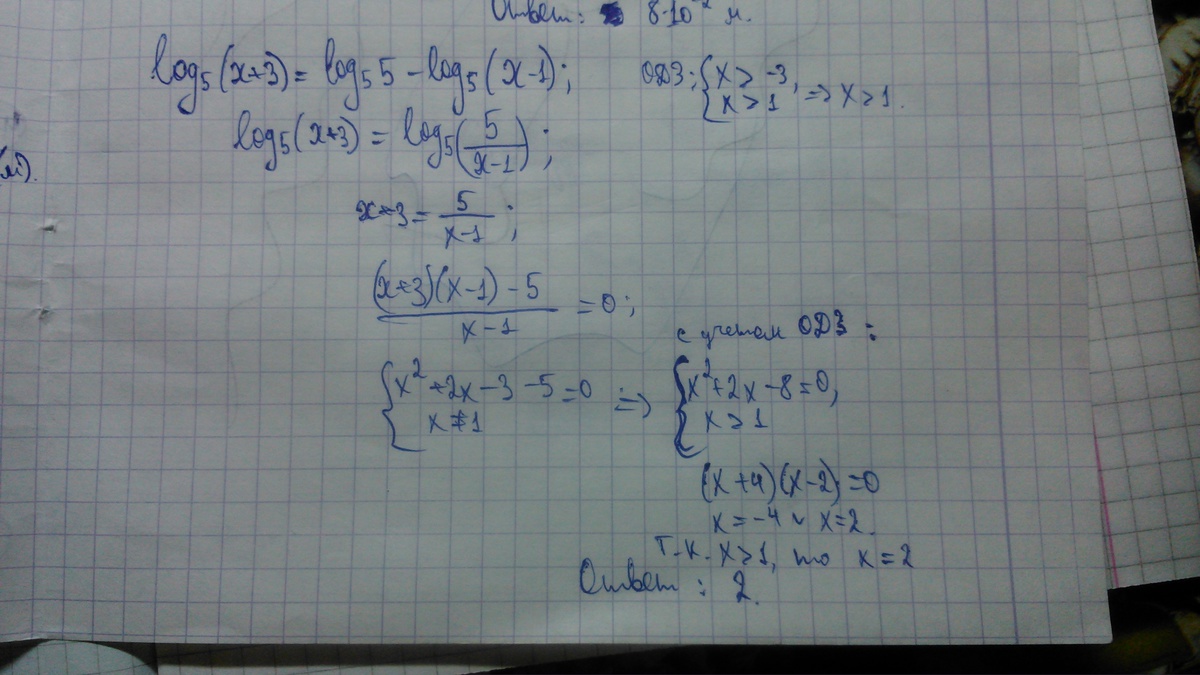 Ответ: 8·10⁻² м.
log₅(x+3) = log₅5 − log₅(x−1); ОДЗ: { x > −3, x > 1 => x > 1.
log₅(x+3) = log₅(5/(x−1));
x+3 = 5/(x−1);
((x+3)(x−1) − 5)/(x−1) = 0;
с учетом ОДЗ:
{ x² + 2x − 3 − 5 = 0 x ≠ 1 => { x² + 2x − 8 = 0, x > 1
(x+4)(x−2) = 0
x = −4 ∨ x = 2.
т.к. x > 1, то x = 2
Ответ: 2.